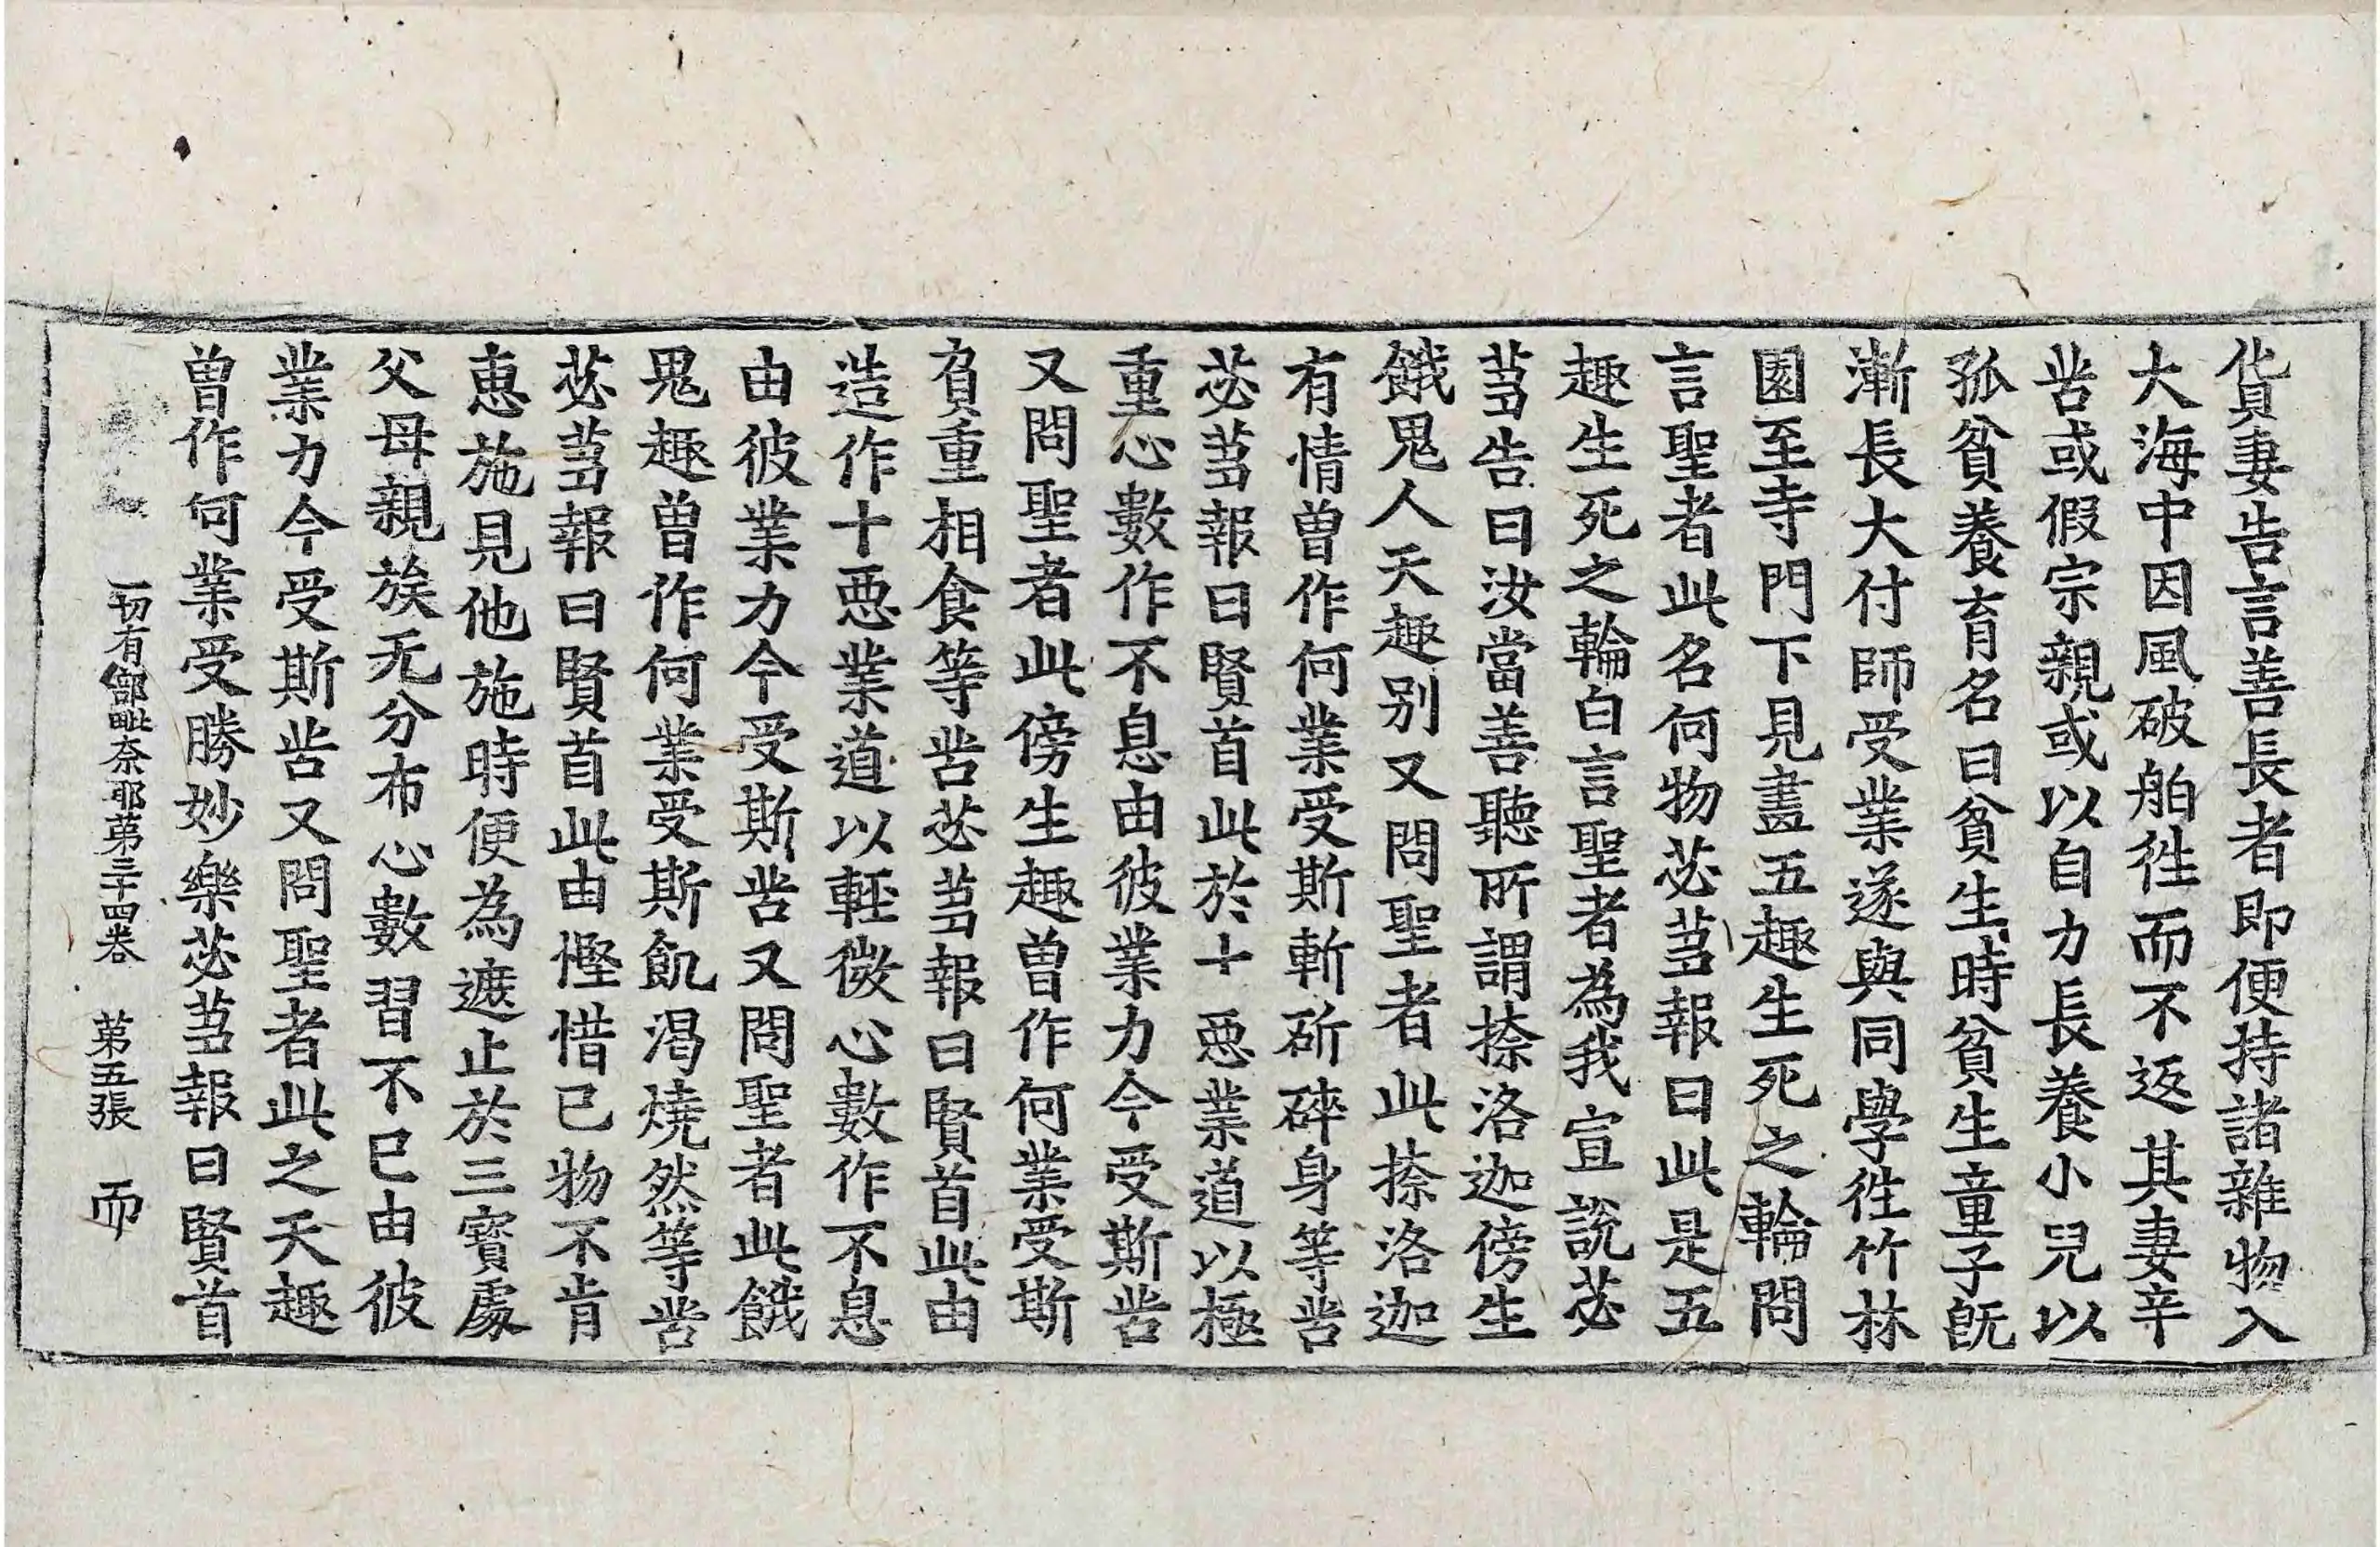 貨妻告言善長者即便持諸雜物入
大海中因風破舶徃而不返其妻辛
苦或假宗親或以自力長養小兒以
孤貧養育名曰貧生時貧生童子旣
漸長大付師受業遂與同學徃竹林
園至寺門下見畫五趣生死之輪問
言聖者此名何物苾芻報曰此是五
趣生死之輪白言聖者為我宣說苾
芻告曰汝當善聽所謂捺洛迦傍生
餓鬼人天趣别又問聖者此捺洛迦
有情曽作何業受斯斬斫碎身等苦
苾芻報曰賢首此於十惡業道以極
重心數作不息由彼業力今受斯苦
又問聖者此傍生趣曽作何業受斯
負重相食等苦苾芻報曰賢首此由
造作十惡業道以輕微心數作不息
由彼業力今受斯苦又問聖者此餓
鬼趣曽作何業受斯飢渴燒然等苦
苾芻報曰賢首此由慳惜已物不肯
惠施見他施時便為遮止於三寳處
父母親族无分布心數習不已由彼
業力今受斯苦又問聖者此之天趣
曽作何業受勝妙樂苾芻報曰賢首
一切有部毗奈耶第三十四卷 第五張 而